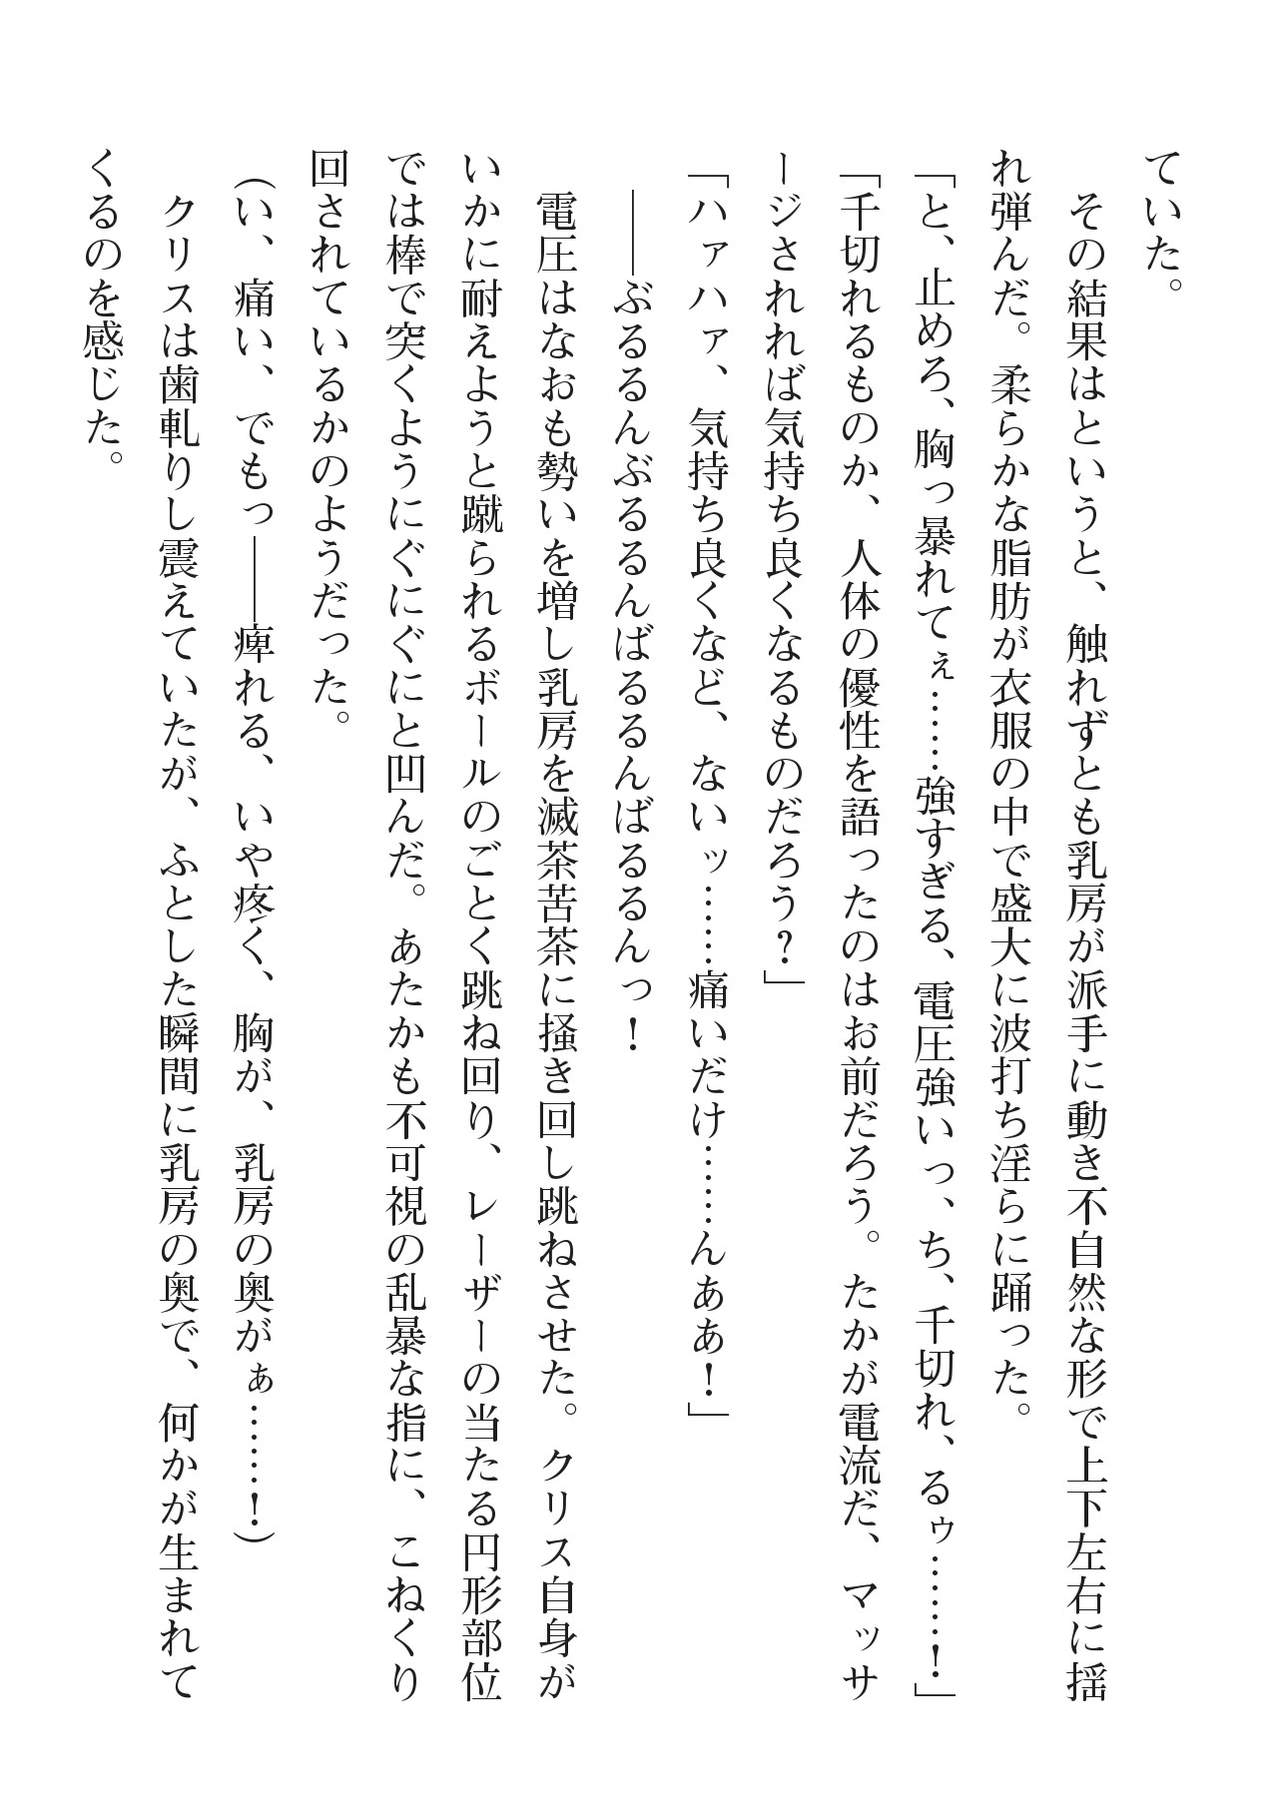 ていた。
　その結果はというと、触れずとも乳房が派手に動き不自然な形で上下左右に揺
れ弾んだ。柔らかな脂肪が衣服の中で盛大に波打ち淫らに踊った。
「と、止めろ、胸っ暴れてぇ……強すぎる、電圧強いっ、ち、千切れ、るゥ……！」
「千切れるものか、人体の優性を語ったのはお前だろう。たかが電流だ、マッサ
ージされれば気持ち良くなるものだろう？」
「ハァハァ、気持ち良くなど、ないッ……痛いだけ……んああ！」
　――ぶるるんぶるるんばるるんばるるんっ！
　電圧はなおも勢いを増し乳房を滅茶苦茶に掻き回し跳ねさせた。クリス自身が
いかに耐えようと蹴られるボールのごとく跳ね回り、レーザーの当たる円形部位
では棒で突くようにぐにぐにと凹んだ。あたかも不可視の乱暴な指に、こねくり
回されているかのようだった。
（い、痛い、でもっ――痺れる、いや疼く、胸が、乳房の奥がぁ……！）
　クリスは歯軋りし震えていたが、ふとした瞬間に乳房の奥で、何かが生まれて
くるのを感じた。